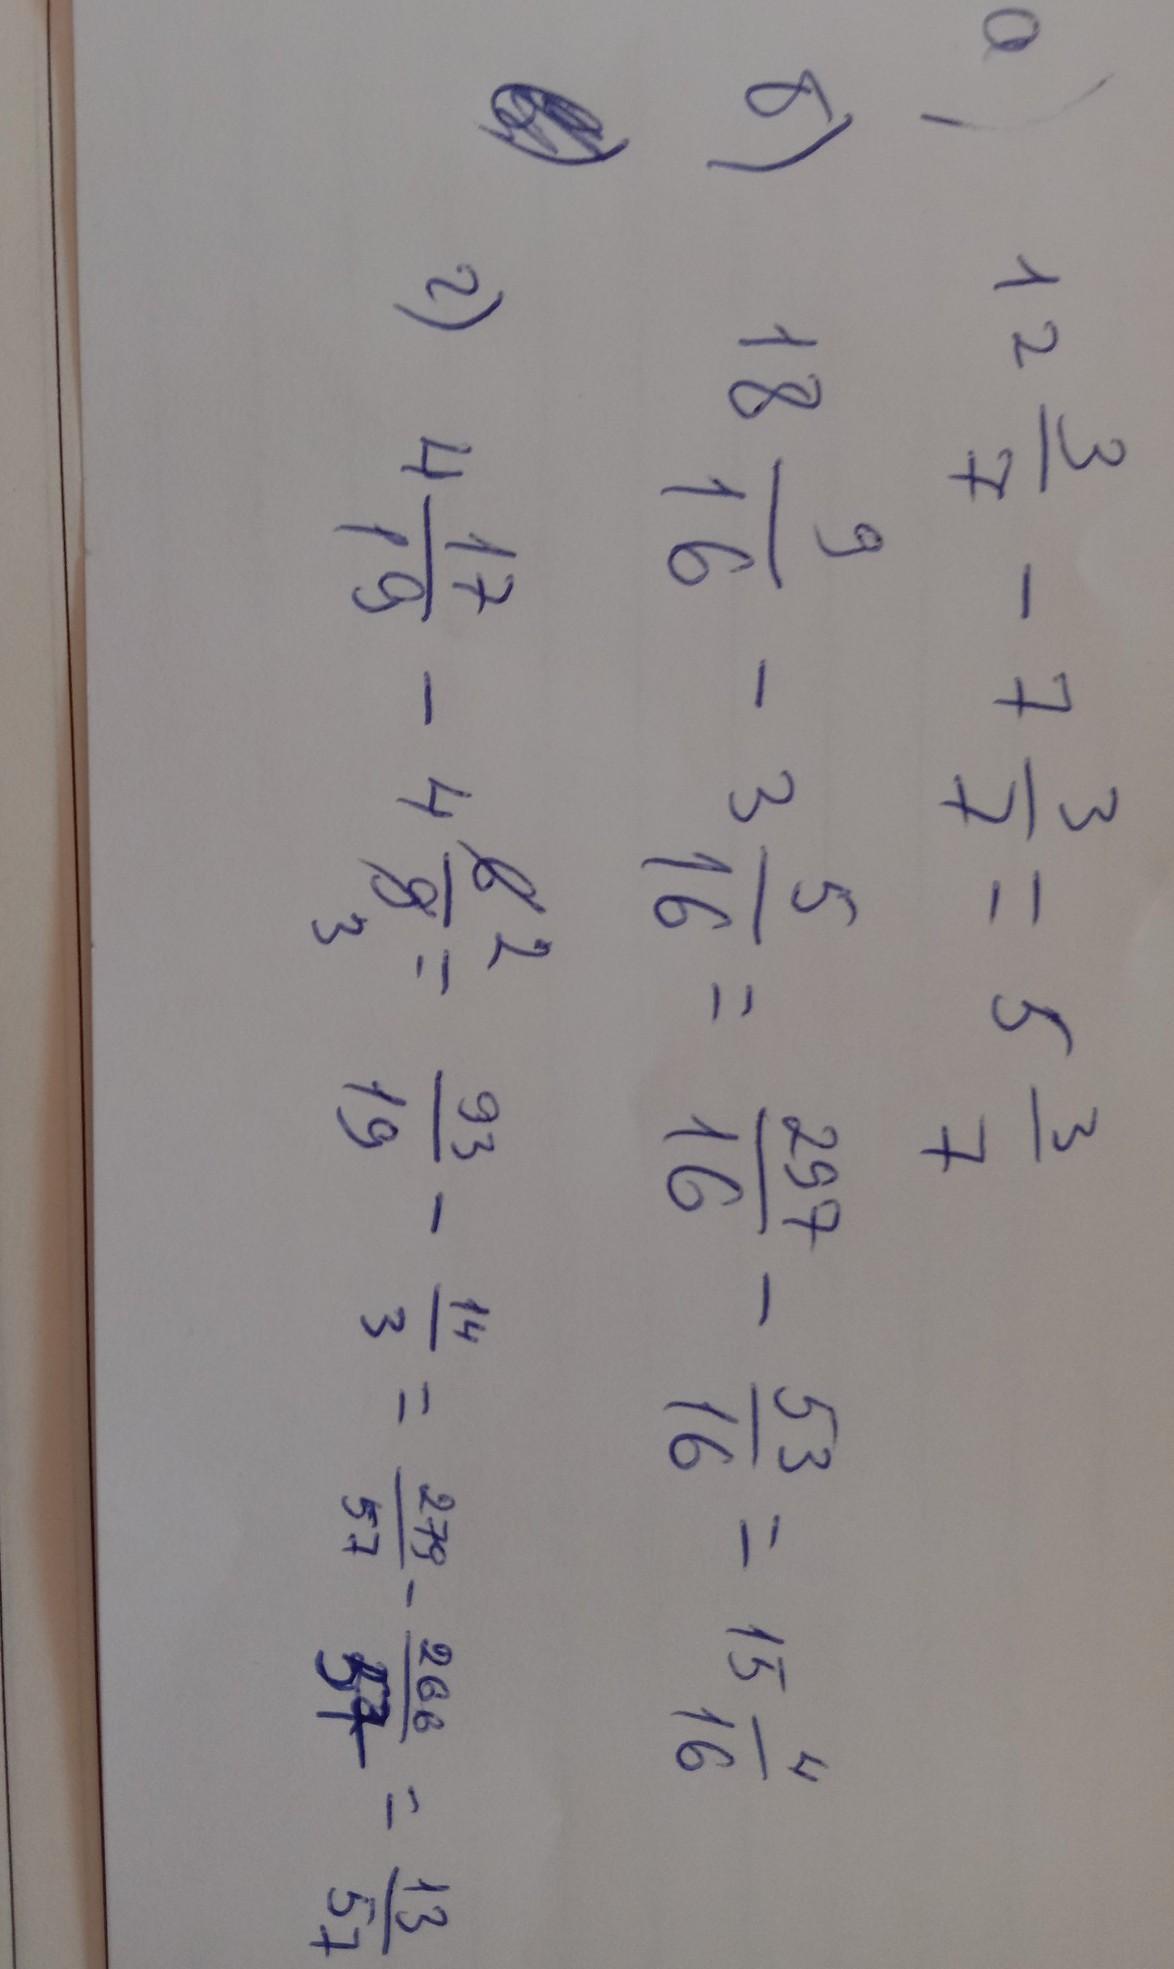 а) 12 3/7 - 7 3/7 = 5 3/7
б) 18 9/16 - 3 5/16 = 297/16 - 53/16 = 15 4/16
г) 4 17/19 - 4 6/9 2/3 = 93/19 - 14/3 = 279/57 - 266/57 = 13/57